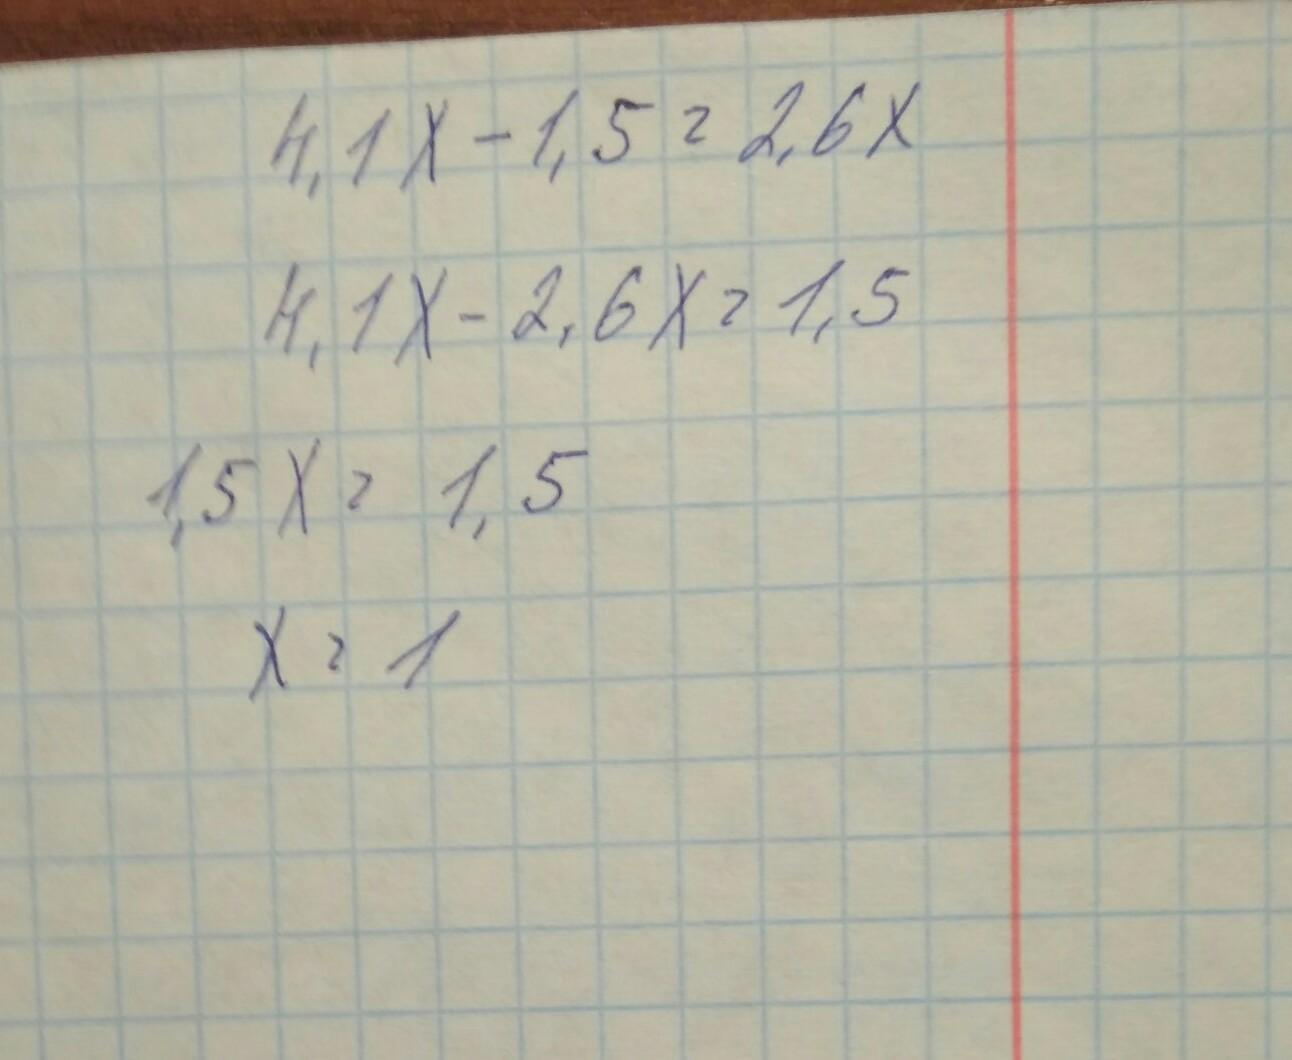 4,1x - 1,5 = 2,6x
4,1x - 2,6x = 1,5
1,5x = 1,5
x = 1